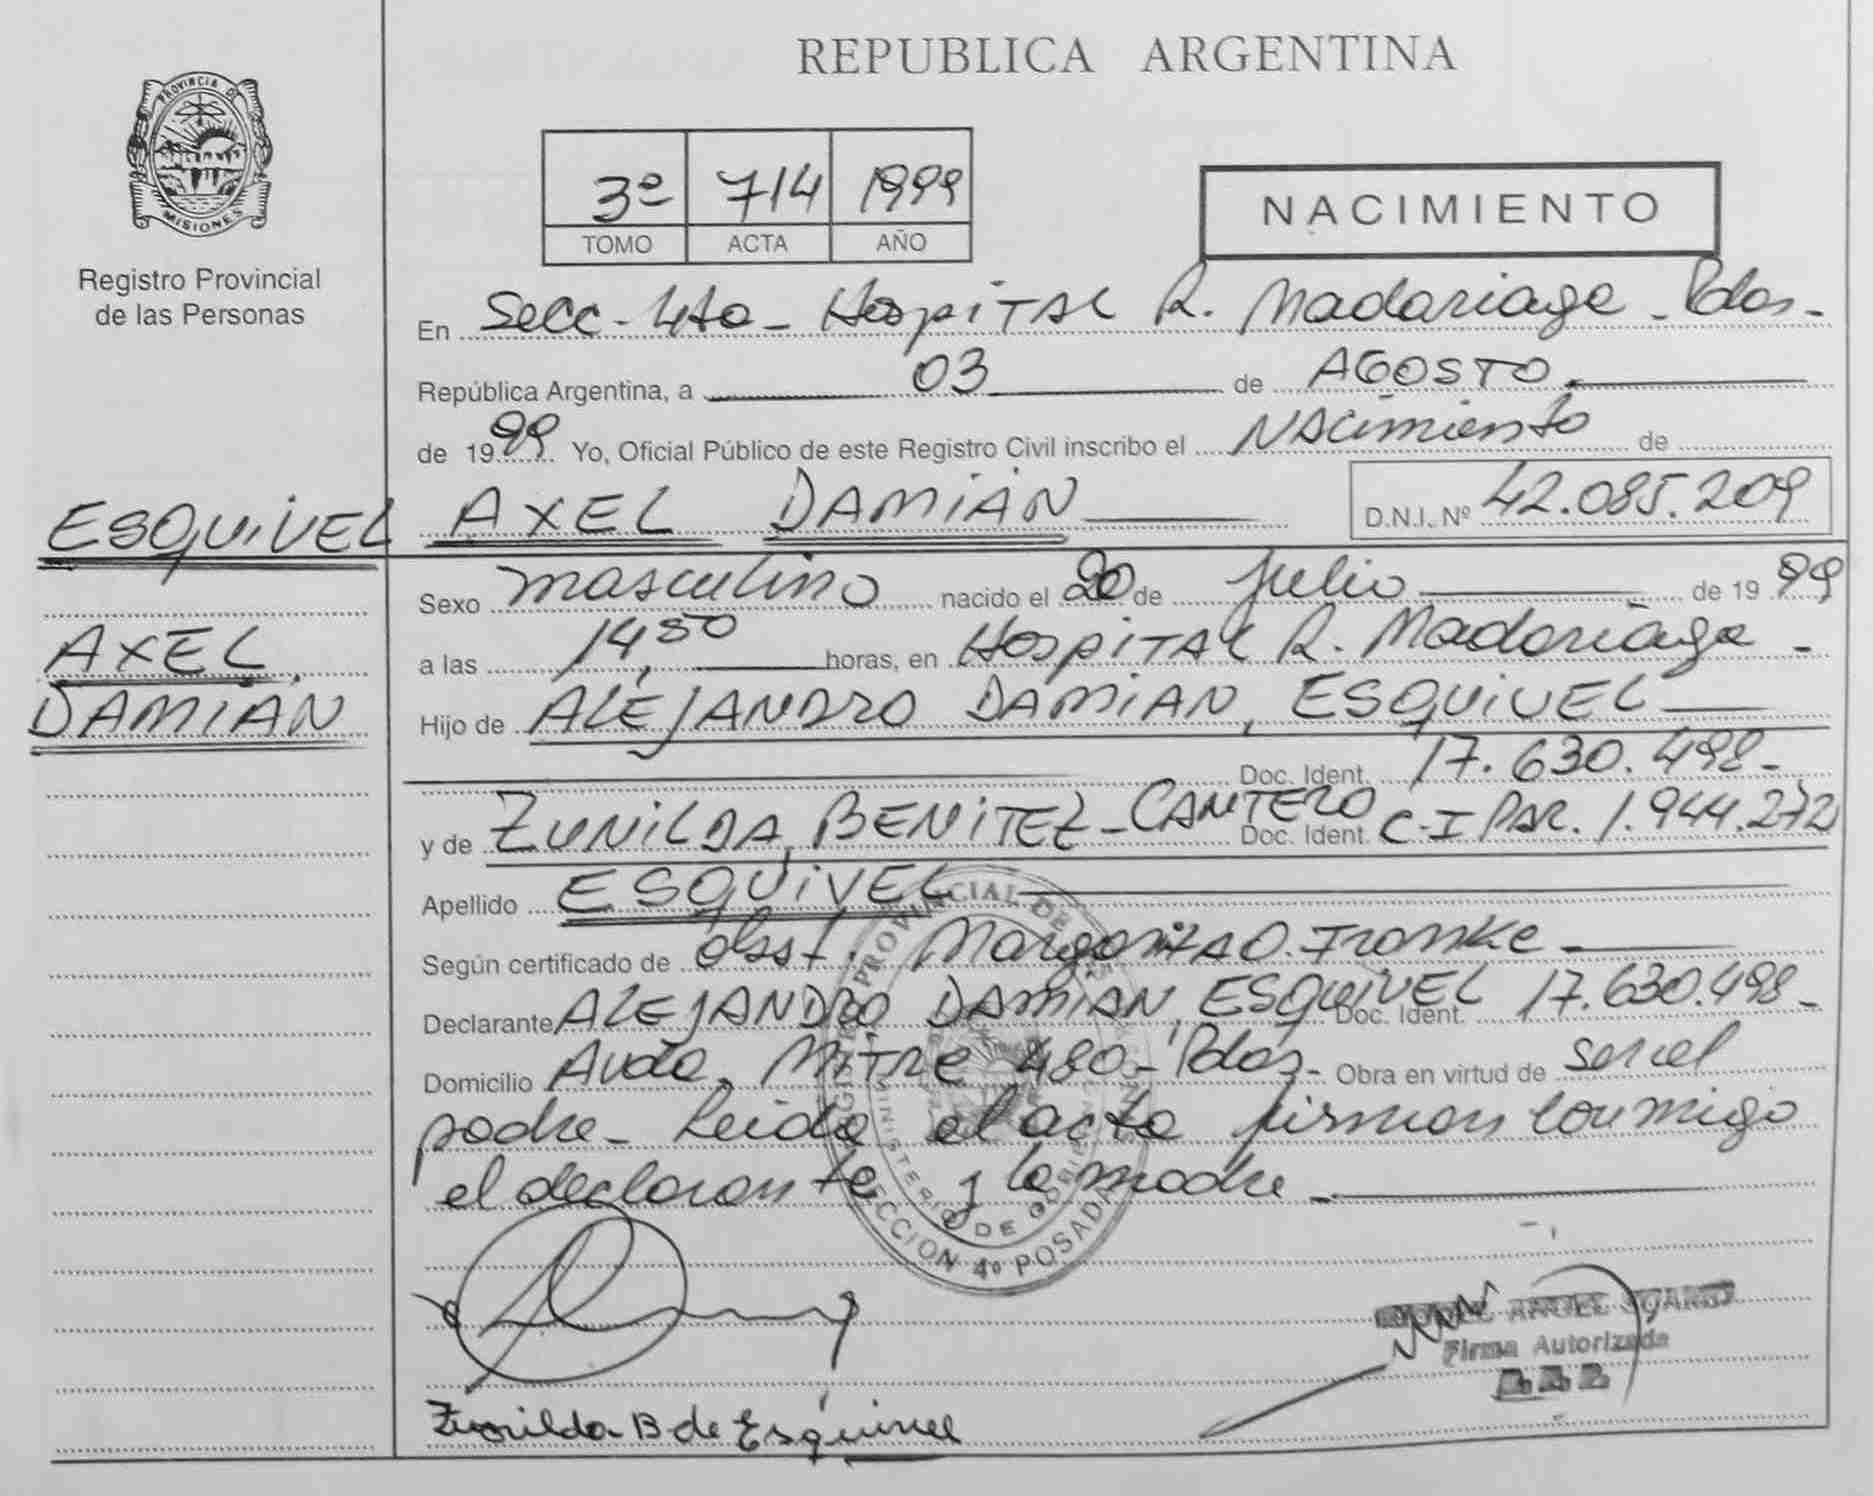 REPUBLICA ARGENTINA
PROVINCIA DE
MISIONES
Registro Provincial
de las Personas
3º 714 1999
TOMO ACTA AÑO
NACIMIENTO
En Secc - 4ta - Hospital R. Madariaga - Pdas -
República Argentina, a 03 de AGOSTO
de 1999 Yo, Oficial Público de este Registro Civil inscribo el Nacimiento de
ESQUIVEL AXEL DAMIÁN D.N.I. Nº 42.085.209
Sexo masculino nacido el 20 de Julio de 1999
AXEL
DAMIÁN
a las 14,50 horas, en Hospital R. Madariaga -
Hijo de ALEJANDRO DAMIAN, ESQUIVEL
Doc. Ident. 17.630.498 -
y de ZUNILDA, BENITEZ - CANTERO Doc. Ident. C.I PAR. 1.944.272
Apellido ESQUIVEL
Según certificado de Obst. Margarita O. Franke -
Declarante ALEJANDRO DAMIAN, ESQUIVEL Doc. Ident. 17.630.498 -
Domicilio Avda. Mitre 480 - Pdas - Obra en virtud de ser el
padre - Leida el acta firman conmigo
el declarante y la madre -
PROVINCIAL DE
MINISTERIO DE
SECCION 4º POSADAS
Zunilda B de Esquivel
ANGEL
Firma Autorizada